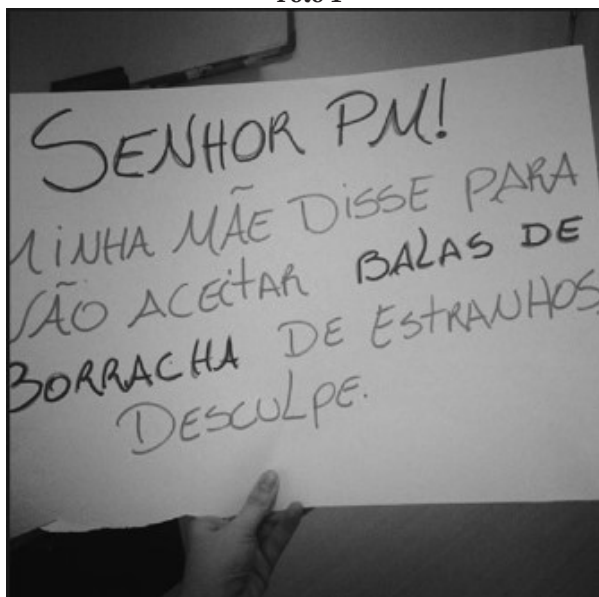 SENHOR PM!
MINHA MÃE DISSE PARA
NÃO ACEITAR BALAS DE
BORRACHA DE ESTRANHOS.
DESCULPE.